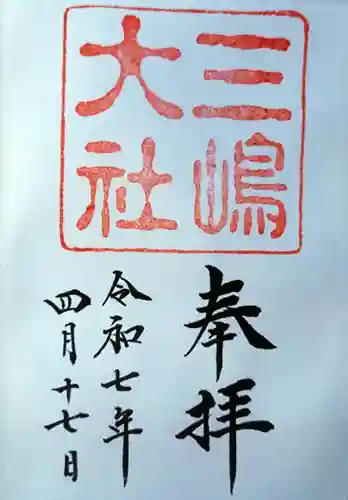 三嶋
大社
奉拝
令和七年
四月十七日